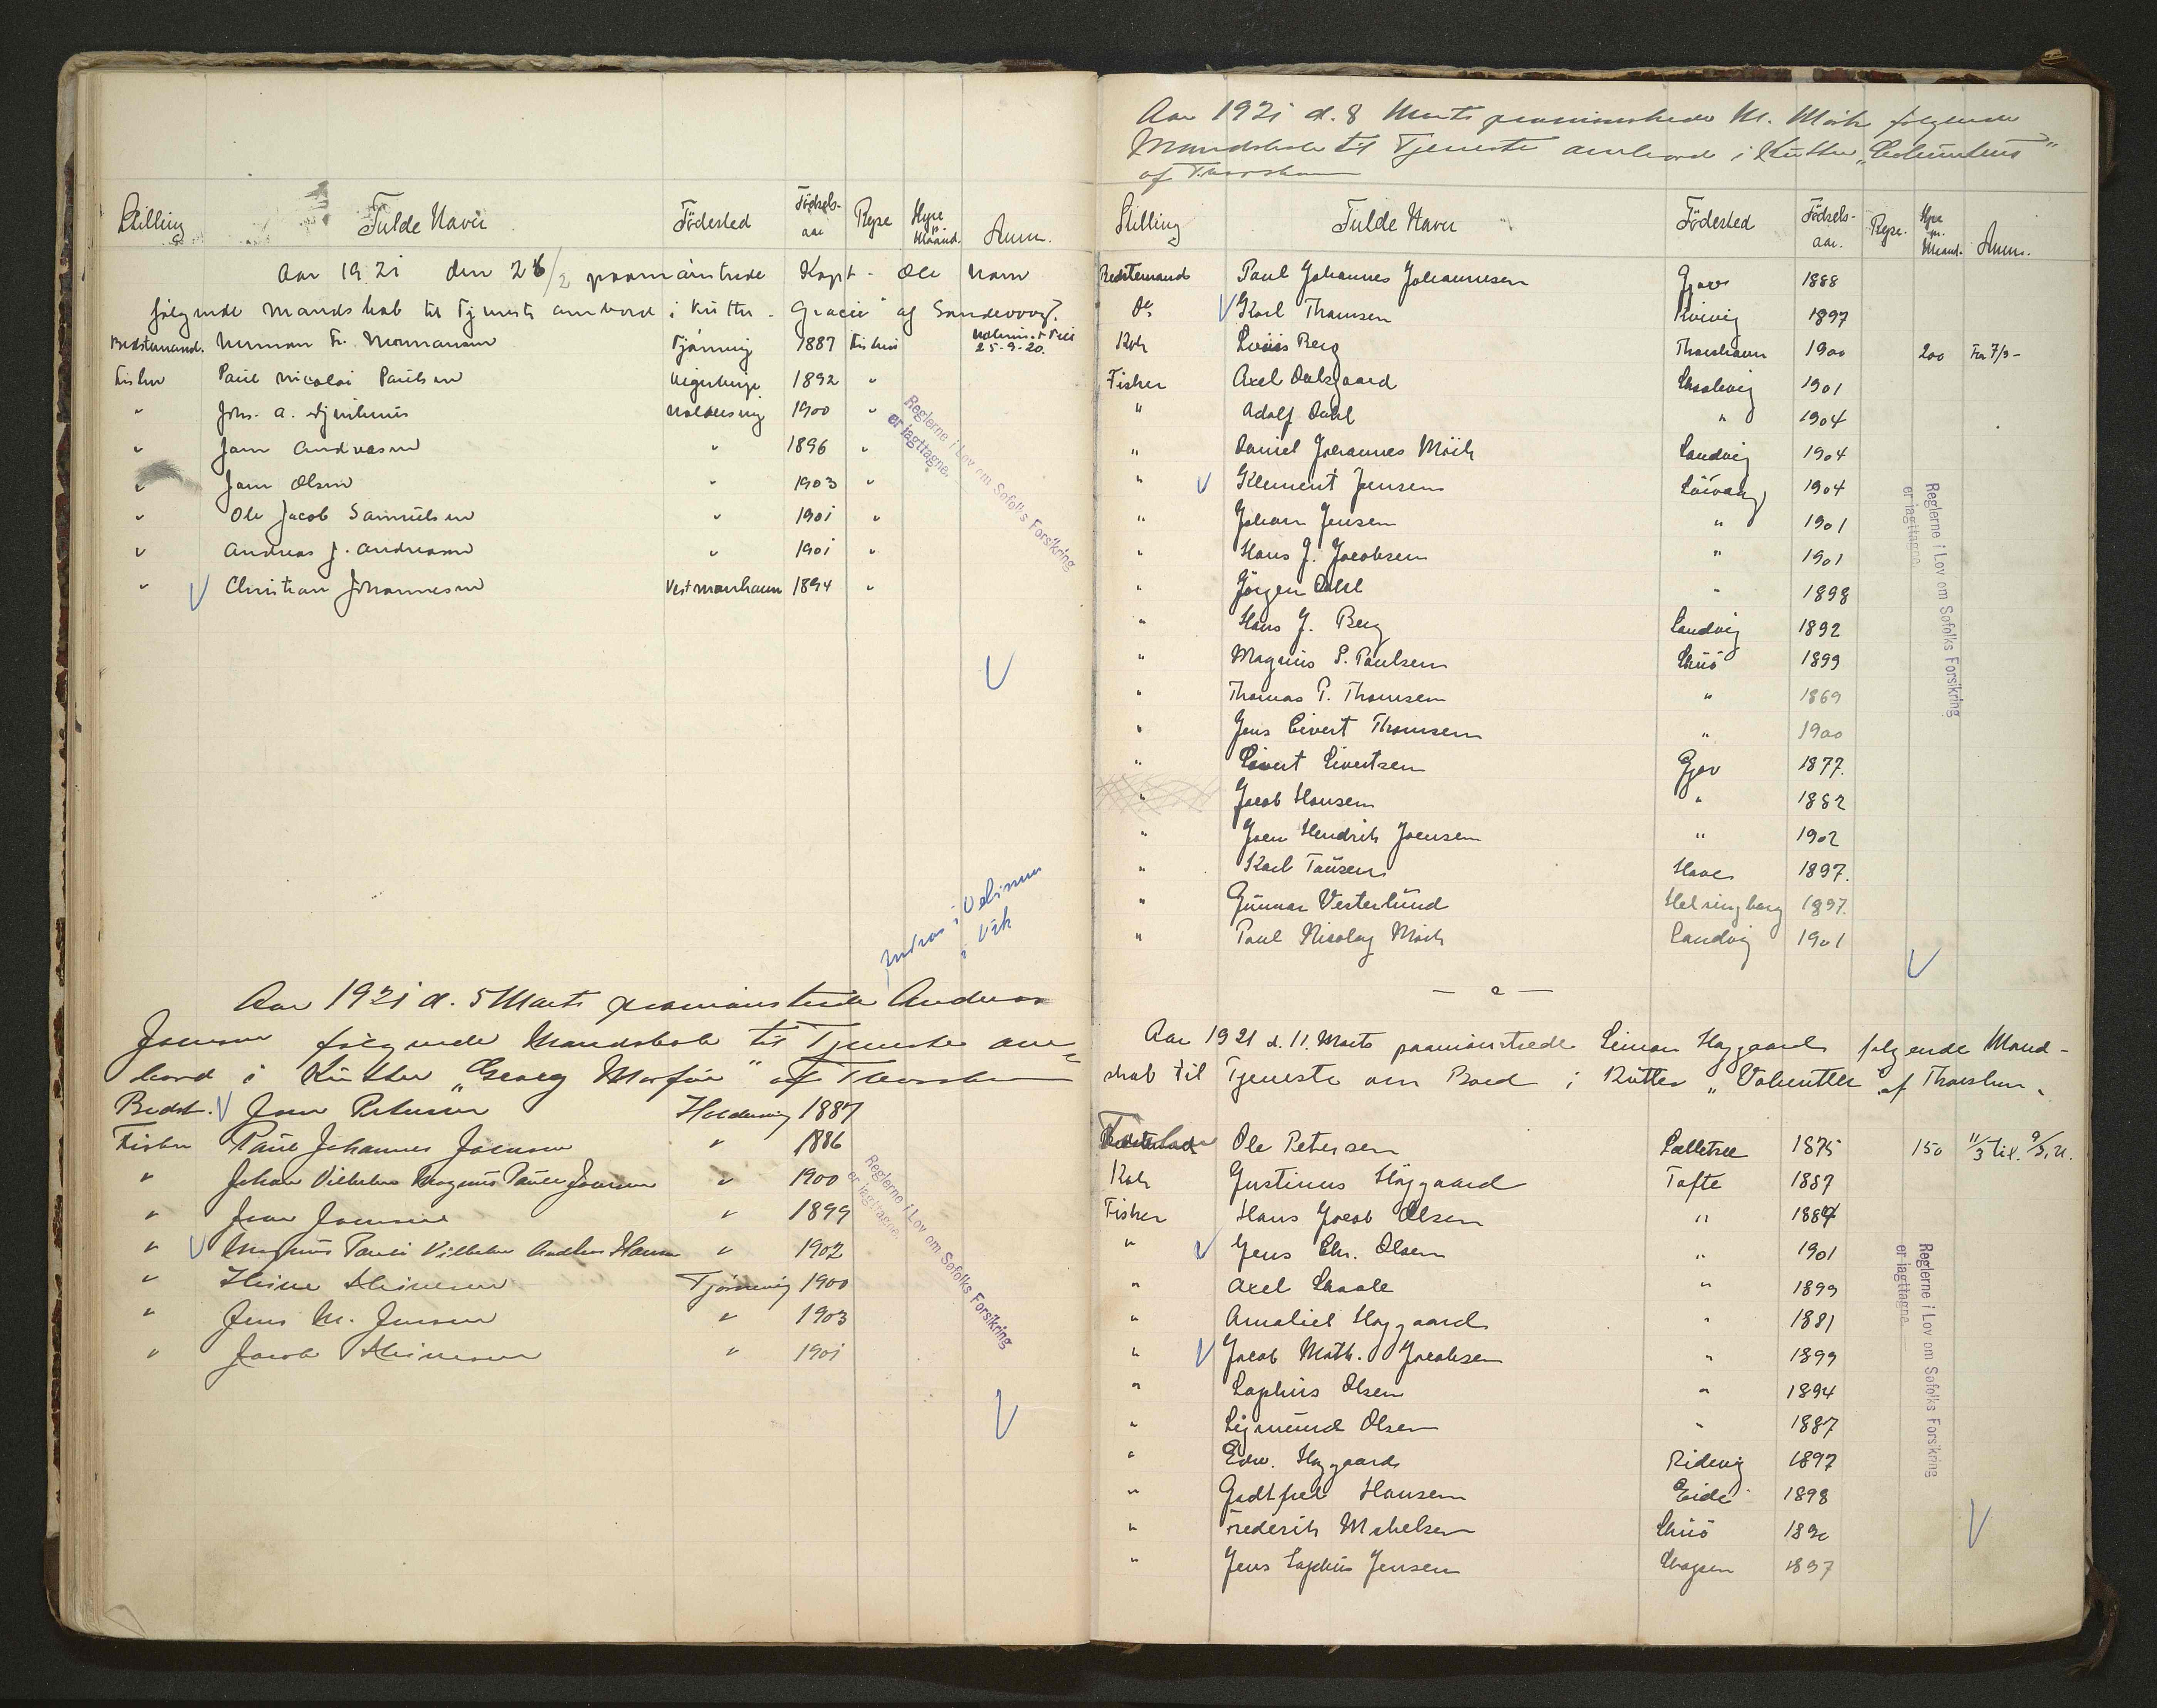 Stilling Fulde Navn Födested Födsels-aar Rejse Hyre p. Maaned. Anm.
Aar 1921 den 26/2 paamönstrede Kapt. Ole
følgende Mandskab til Tjeneste ombord i Kutter "Gracie" af Sandevaag.
Bedstemand. F. 1887 Fiskeri
25-9-20.
Fisker Paul Nicolai Paulsen 1892 "
" Johs. a. 1900 "
" Joen Andreasen " 1896 "
" Joen Olsen " 1903 "
" Ole Jacob Samuelsen " 1901 "
" Andreas J. Andreasen " 1901 "
" V Christian Johannesen Vestmanhavn 1894 "
Reglerne i Lov om Søfolks Forsikring
er iagttagne.
V
Aar 1921 d. 5 Marts paamönstrede Andreas
Joensen følgende Mandskab til Tjeneste om-
bord i Kutter "Georg" af Thorshavn
Bedst. V Joen Petersen Holdersvig 1887
Fisker Paul Johannes Joensen " 1886
" Johan Vilhelm Magnus Paule Joensen " 1900
" Joen Joensen " 1899
" V Magnus Pauli Vilhelm Hansen " 1902
" Heine Heinesen Tjörnevig 1900
" Jens M. Jensen " 1903
" Jacob Heinesen " 1901
Reglerne i Lov om Søfolks Forsikring
er iagttagne.
V
Aar 1921 d. 8 Marts paamönstrede M. Mörk følgende
Mandskab til Tjeneste ombord i Kutter "Columbus"
af Thorshavn
Stilling Fulde Navn Födested Födsels-aar. Rejse. Hyre p. Maaned. Anm.
Bedstemand Paul Johannes Johannesen Gjov 1888
Do V Karl Thomsen Kvivig 1897
Kok Louis Berg Thorshavn 1900 200 Fra 7/3-
Fisker Axel Dalsgaard Skaalevig 1901
" Adolf Dahl " 1904
" Daniel Johannes Mörk Sandvig 1904
" V Klement Jensen 1904
" Johan Jensen " 1901
" Hans J. Jacobsen " 1901
" Jörgen Dahl " 1898
" Hans J. Berg Sandvig 1892
" Magnus S. Poulsen Skuö 1899
" Thomas P. Thomsen " 1869
" Jens Sivert Thomsen " 1900
" Sivert Sivertsen Gjov 1877.
" Jacob Hansen " 1882
" Joen Hendrik Joensen " 1902
" Karl Tausen 1897.
" Gunnar Vesterlund Helsingborg 1897.
" Paul Nicolay Mörk Sandvig 1901
Reglerne i Lov om Søfolks Forsikring
er iagttagne.
V
Aar 1921 d. 11. Marts paamönstrede Simon Højgaard følgende Mand-
skab til Tjeneste om Bord i Kutter "Valentte" af Thorshavn.
Ole Petersen 1875 150 11/3 til
Kok Justinus Højgaard Tofte 1887
Fisker Hans Jacob Olsen " 1884
" V Jens Chr. Olsen " 1901
" Axel Skaale " 1899
" Amaliel Højgaard " 1881
" V Jacob Math. Jacobsen " 1899
" Sophus Olsen " 1894
" Sigmund Olsen " 1887
" Edw. Højgaard Ridevig 1897
" Godtfred Hansen Eide 1898
" Frederik Mikkelsen Skuö
" Jens Sophus Jensen 1897
Reglerne i Lov om Søfolks Forsikring
er iagttagne.
V